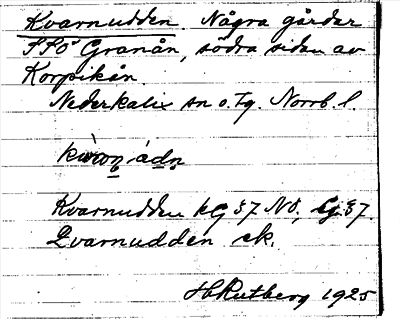 Kvarnudden. Några gårdar
FFÖ Granån, södra sidan av
Korpikån.
Nederkalix sn o. Tg. Norrb. l.
Kvarnudden kG 37 NÖ, Lg. 37.
Qvarnudden ek.
H Rutberg 1925